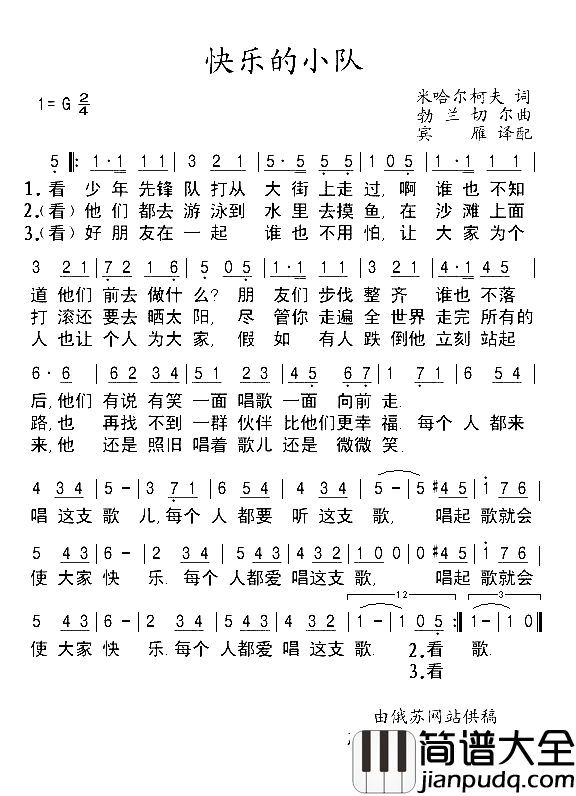 快乐的小队
1=G 2/4
米哈尔柯夫 词
勃兰切尔曲
宾 雁 译配
5 ‖: 1·1 1·1 | 3 21 | 5·5 5 5 | 105 | 1·1 1·1 |
1.看 少年先锋 队打从 大街上走过,啊 谁也不知
2.(看)他们都去 游泳到 水里去摸鱼,在 沙滩上面
3.(看)好朋友在 一起 谁也不用怕,让 大家为个
3 21 | 72 16 | 5 05 | 1·1 23 | 4·1 | 45
道他们 前去做什么? 朋 友们步伐 整齐 谁也不落
打滚还 要去晒太阳, 尽 管你走遍 全世界走完所有的
人也让 个人为大家, 假 如 有人跌 倒他立刻站起
后,他们 有说有笑一面唱歌一面 向前走.
路,也 再找不到一群伙伴比他们更幸福.每个人都来
来,他 还是照旧唱着歌儿还是 微微笑.
4 34 | 5- | 3 71 | 6 54 | 2 34 | 5- | 5 #45 | 176 |
唱 这支 歌 儿,每个 人 都要 听 这支 歌, 唱起 歌就会
5 43 | 6- | 2 34 | 5 43 | 2 34 | 1 00 | 0 #45 | 176 |
使 大家 快 乐.每个 人都爱 唱这支 歌, 唱起 歌就会
12 3
5 43 | 6- | 2 34 | 5 43 | 2 34 | 1- | 105 :‖ 1- | 10 ‖
使 大家 快 乐.每个 人都爱 唱 这支 歌. 2.看 歌.
3.看
由俄苏网站供稿
简谱大全
jianpudq.com